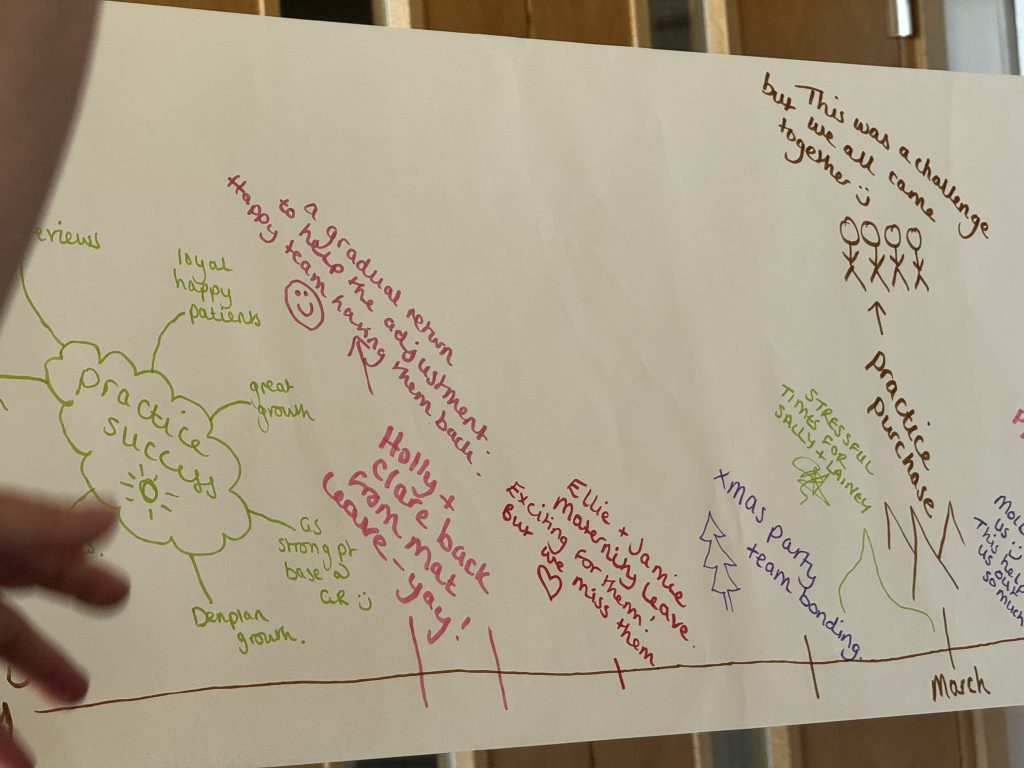 practice
success
loyal
happy
patients
great
growth
GS
strong pt
base @
GR
Denplan
growth.
a gradual return
to help the adjustment.
Happy team having them back.
Holly +
Clare back
from mat
leave - yay!
Ellie + Jamie
Maternity Leave.
Exciting for them!
But we miss them
xmas party
team bonding.
STRESSFUL
TIMES FOR
SALLY + LAINEY
This was a challenge
but we all came
together
practice
purchase
us
This
us out
so much
March